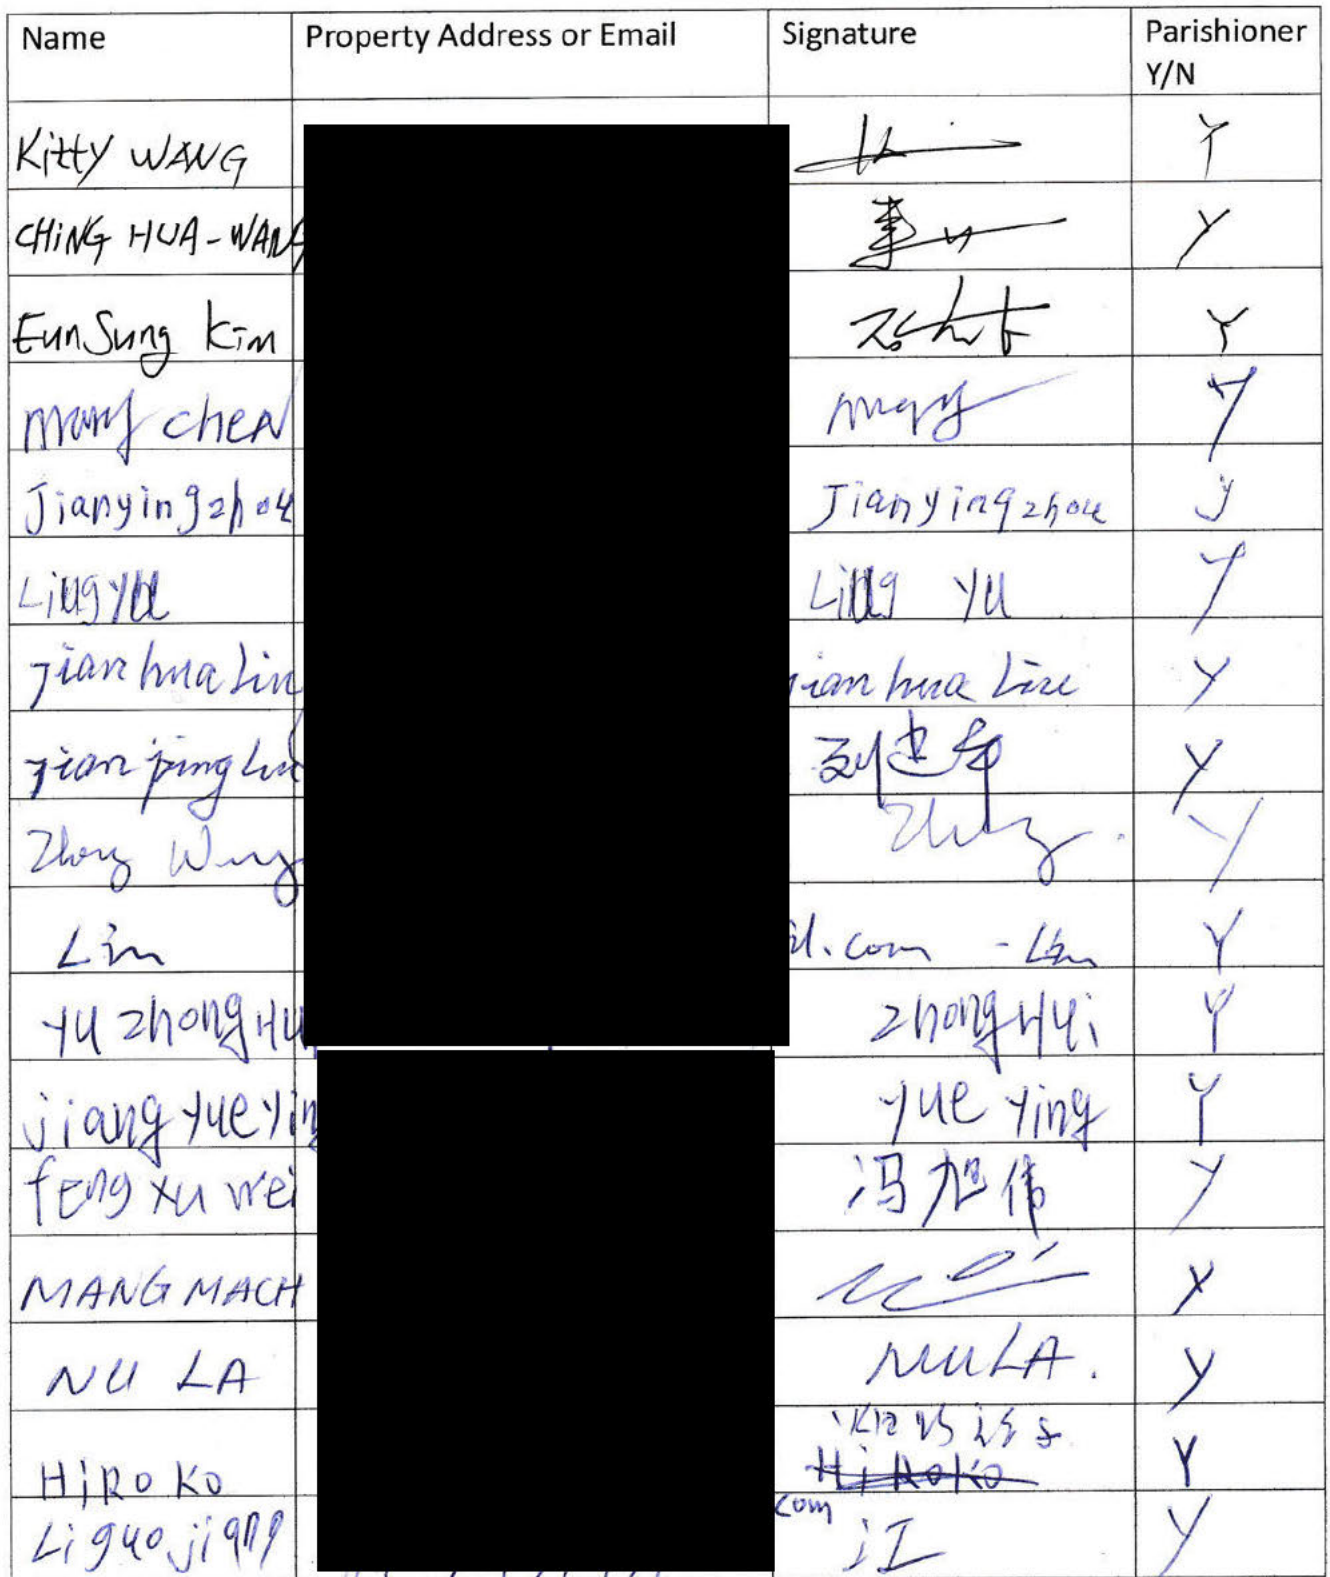 Name Property Address or Email Signature Parishioner
Y/N
Kitty WANG Y
CHING HUA-WANG Y
EunSung Kim Y
mary chen mary Y
Jianyingzhou Jianyingzhou y
Ling Yu Ling Yu Y
jianhua Liu jianhua Liu Y
jianping Liu 刘建华 Y
Zhong Wang Y
Lin il.com - Lin Y
YU zhong Hui zhong Hui Y
jiang yue ying yue ying Y
feng xu wei 冯旭伟 Y
MANG MACH Y
NU LA NU LA. Y
HiROKO HiROKO Y
Li guo jiang com 江 Y